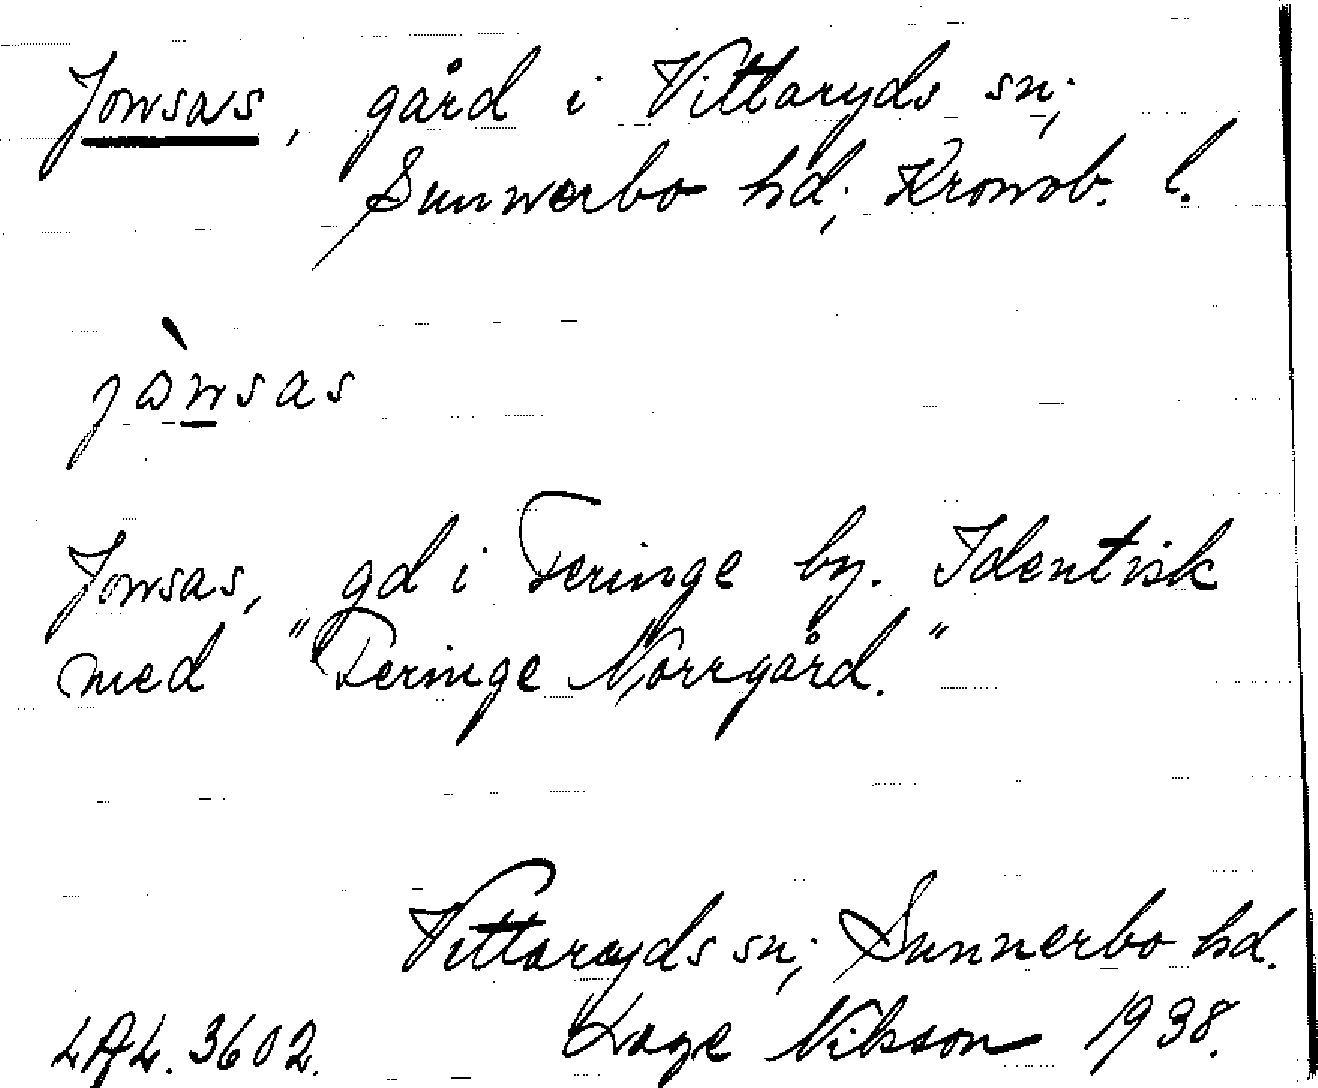 Jonsas, gård i Vittaryds sn;
Sunnerbo hd; Kronob. l.
jònsas
Jonsas, gd i Teringe by. Identisk
med "Teringe Norrgård."
Vittaryds sn; Sunnerbo hd.
LAL. 3602. Lage Nilsson 1938.